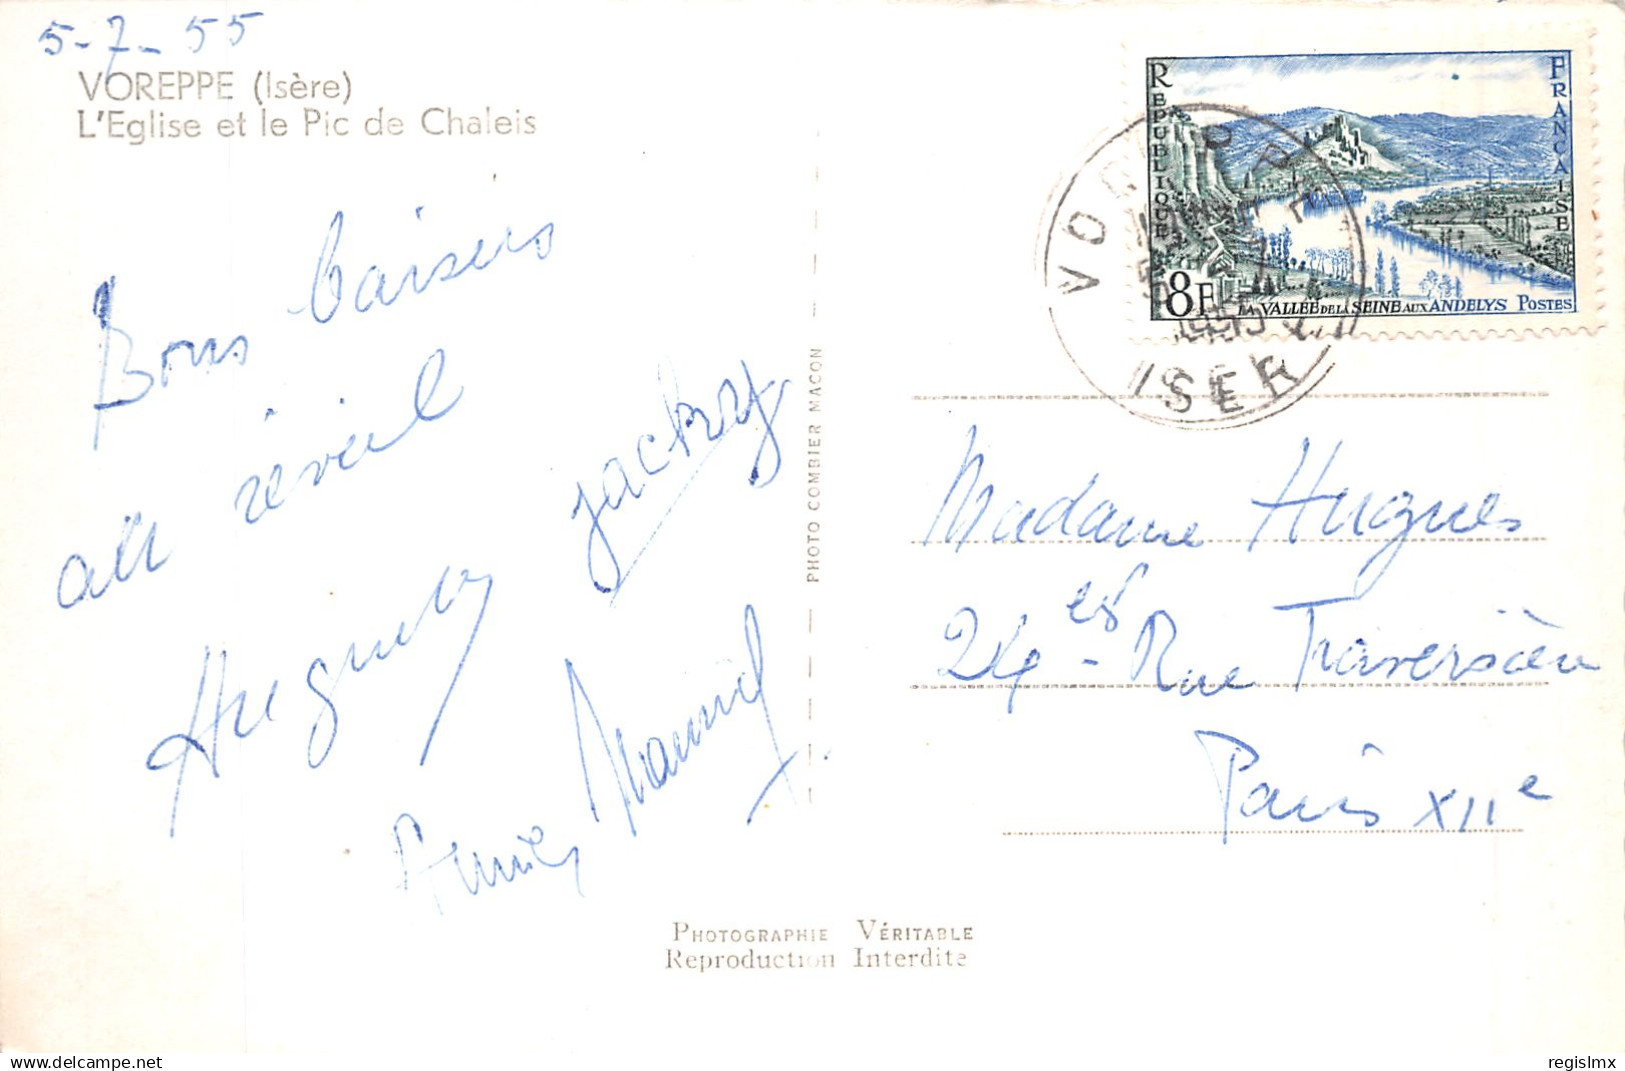 5-7-55
VOREPPE (Isère)
L'Eglise et le Pic de Chaleis
Bons baisers
au réveil
Jacky
PHOTO COMBIER MACON
REPUBLIQUE
FRANÇAISE
8F
LA VALLEE DE LA SEINE AUX ANDELYS POSTES
VOREPPE
1955
ISERE
Madame Hugues
24 - Rue Traversière
Paris XIIe
PHOTOGRAPHIE VÉRITABLE
Reproduction Interdite
regislmx